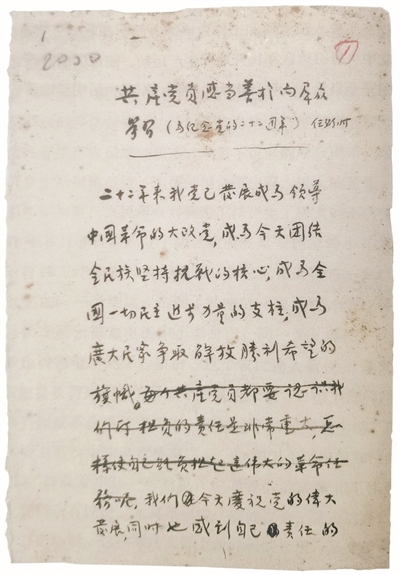 2000
1
共產党员应当善於向群众
学习(为纪念党的二十二週年) 任弼时
二十二年来我党已發展成为領導
中國革命的大政党,成为今天團结
全民族坚持抗戰的核心,成为全
國一切民主進步力量的支柱,成为
廣大民眾争取解放勝利希望的
旗幟。每个共產党员都要認识我
们所担负的責任是非常重大,怎
樣使自己能负担起這伟大的革命任
務呢,我们在今天慶祝党的偉大
發展同时也感到自己責任的